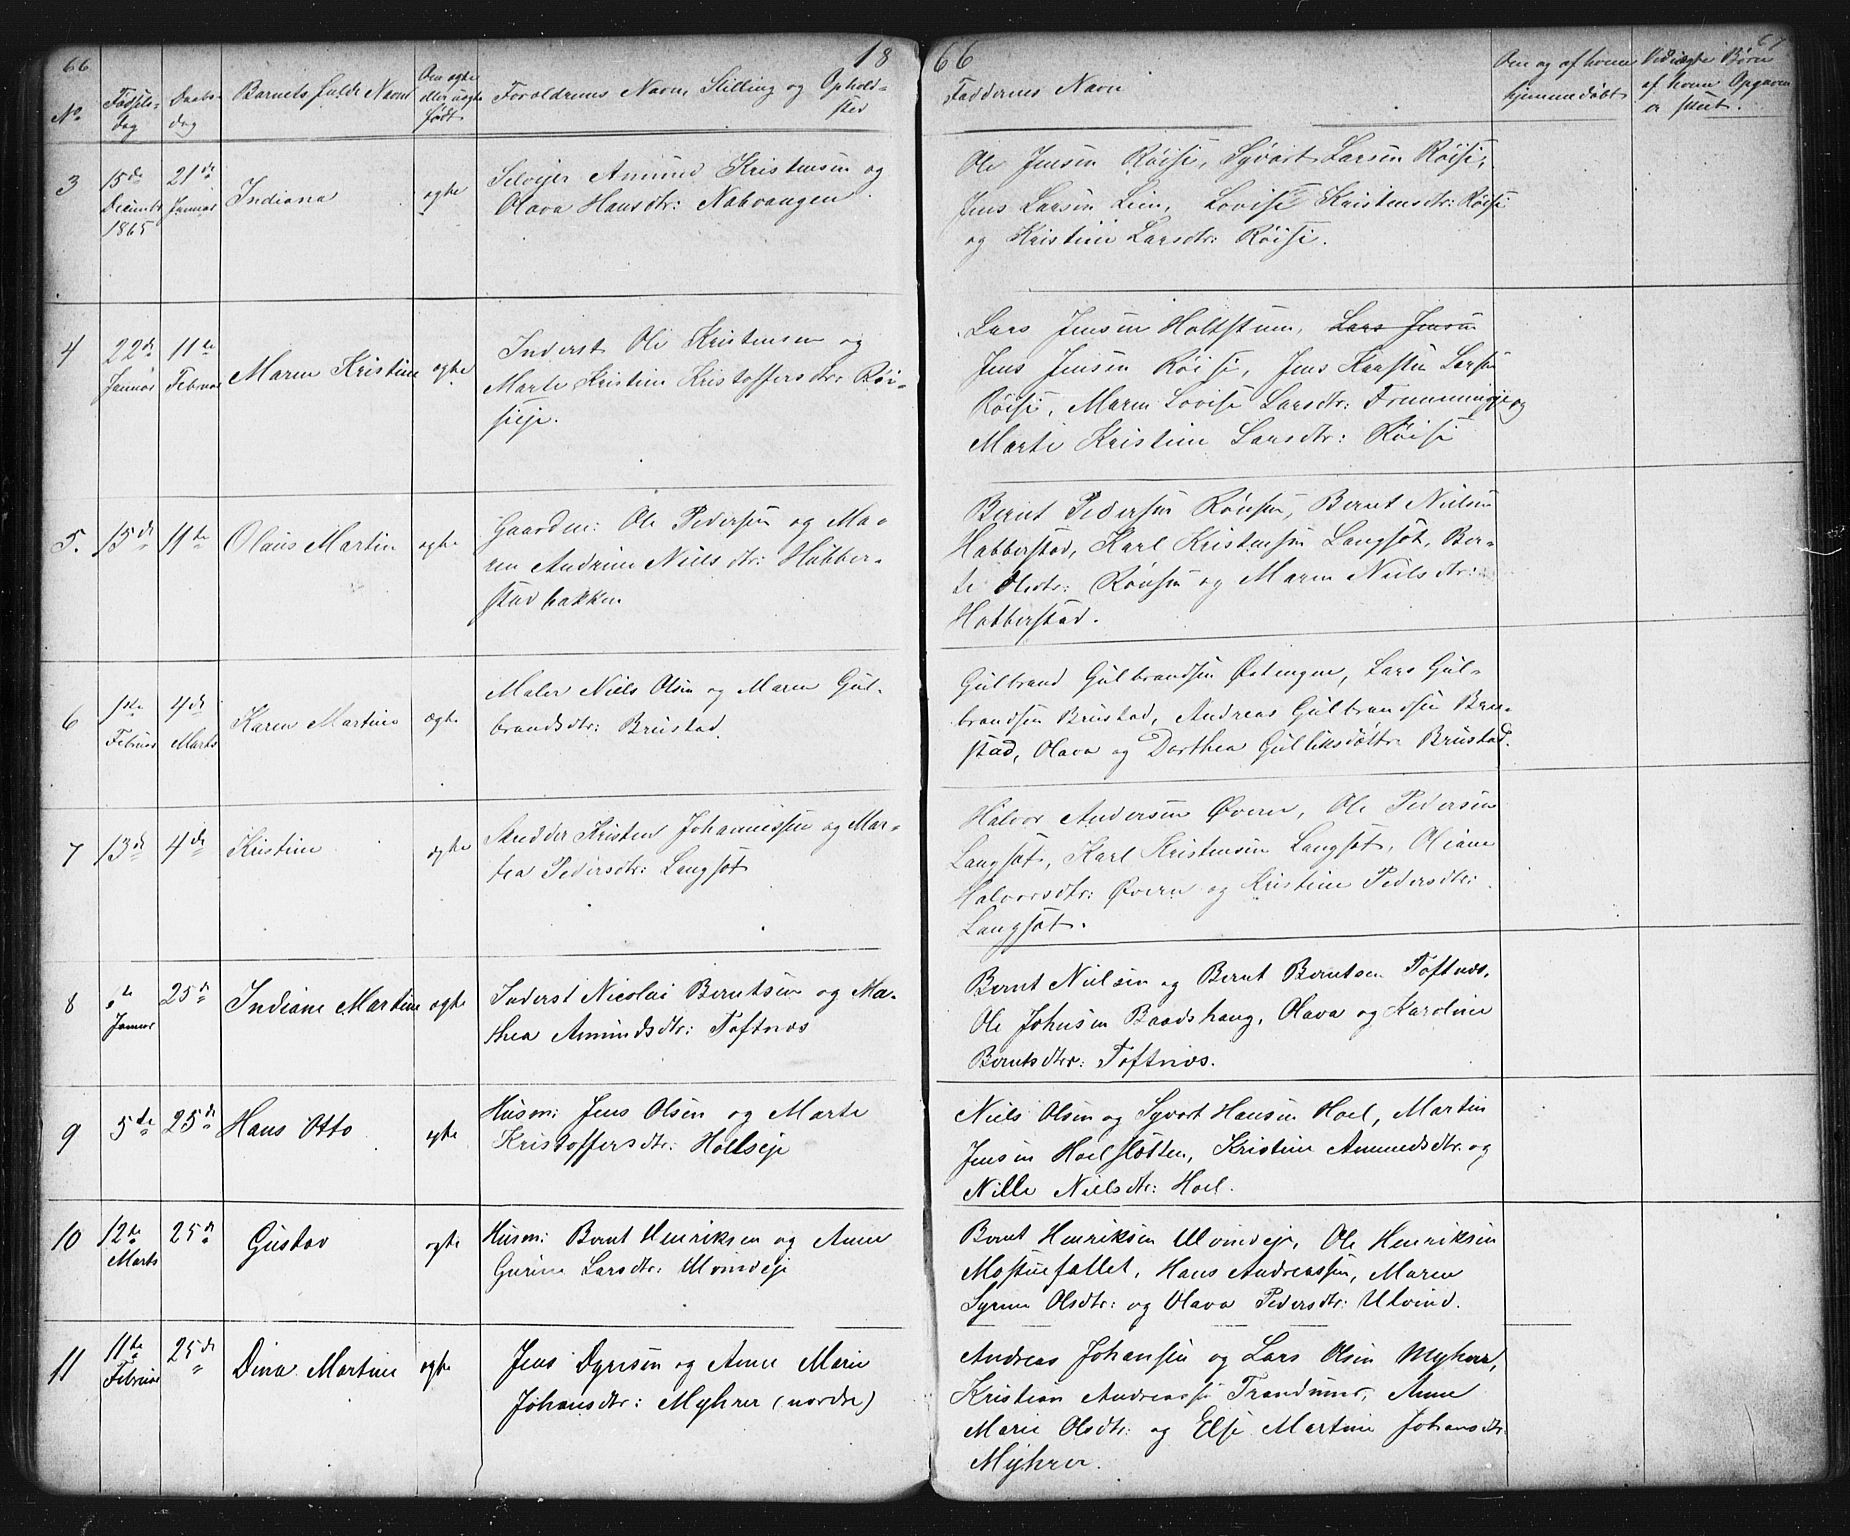 66
18
No
Fødsels-
dag
Daabs-
dag
Barnets fulde Navn
Om ægte
eller uægte
født
Forældrenes Navn, Stilling og Ophold-
sted
3
15de
Decembr
1865
21de
Januar
Indiana
ægte
Selveier Amund Kristensen og
Olava Hansdtr: Nabvangen
4
22de
Januar
11te
Februar
Maren Kristine
ægte
Inderst Ole Kristensen og
Marte Kristine Kristoffersdtr: Røi-
sieje.
5.
15de
11te
Olaus Martin
ægte
Gaardm: Ole Pedersen og Ma-
ren Andrine Nielsdtr: Habber-
stadbakken
6
1ste
Februar
4de
Marts
Karen Martine
ægte
Maler Niels Olsen og Maren Gul-
brandsdtr: Brustad.
7
13de
4de
Kristine
ægte
Skrædder Kristen Johannessen og Mar-
tea Pedersdtr: Langset
8
Januar
25de
Indiane Martine
ægte
Inderst Nicolai Berntsen og Ma-
thea Amundsdtr: Toftnæs
9
5de
25de
Hans Otto
ægte
Husm: Jens Olsen og Marte
Kristoffersdtr: Hollseje
10
12te
Marts
25de
Gustav
ægte
Husm: Bernt Henriksen og Anne
Gurine Larsdtr: Ulvindeje
11
11te
Februar
25de
Dina Martine
ægte
Jens Dyresen og Anne Marie
Johansdtr: Myhrer (nordre)
66
67
Faddernes Navn
Om og af hvem
hjemmedøbt
Uddøbte Børn
af hvem Opgaven
er skeet.
Ole Jensen Røise, Syvert Larsen Røise,
Jens Larsen Lien, Lovise Kristensdtr: Røise
og Kristine Larsdtr: Røise.
Lars Jensen Holtstuen, Lars Jensen
Jens Jensen Røise, Jens Karsten Larsen
Røise, Maren Lovise Larsdtr: Fremmingeje og
Marte Kristine Larsdtr: Røise
Bernt Pedersen Rønsen, Bernt Nielsen
Habberstad, Karl Kristensen Langset, Ber-
te Olsdtr: Rønsen og Maren Nielsdtr:
Habberstad.
Gulbrand Gulbrandsen Østengen, Lars Gul-
brandsen Brustad, Andreas Gulbrandsen Bru-
stad, Olava og Dorthea Gulliksdøttr: Brustad.
Halvor Andersen Øvern, Ole Pedersen
Langset, Karl Kristensen Langset, Oliane
Halvorsdtr: Øvern og Kristine Pedersdtr:
Langset.
Bernt Nielsen og Bernt Berntsen Toftnæs,
Ole Johnsen Baadshaug, Olava og Karoline
Berntsdtrr: Toftnæs.
Niels Olsen og Syvert Hansen Hoel, Martin
Jensen Hoelsletten, Kristine Amundsdtr. og
Nille Nielsdtr: Hoel.
Bernt Henriksen Ulvindeje, Ole Henriksen
Mostuefallet, Hans Andreassen, Maren
Syrine Olsdtr: og Olava Pedersdtr: Ulvind.
Andreas Johansen og Lars Olsen Myhrer,
Kristian Andreassen Trandumr, Anne
Marie Olsdtr: og Else Martine Johansdtr.
Myhrer.